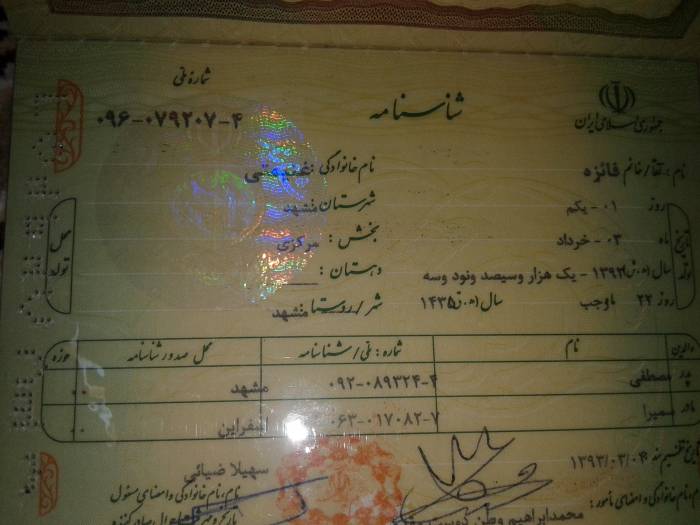 جمهوری اسلامی ایران
شناسنامه
شماره ملی
۰۹۶-۰۷۹۲۰۷-۴
نام : آقا/خانم فائزه
نام خانوادگی :
تاریخ تولد
روز ۰۱ - یکم
شهرستان مشهد
ماه ۰۳ - خرداد
بخش : مرکزی
سال (ه.ش) ۱۳۹۳ - یک هزار وسیصد ونود وسه
دهستان :
روز ۲۲ ماه رجب سال (ه.ق) ۱۴۳۵
شهر/روستا مشهد
محل تولد
والدین نام شماره : ملی/شناسنامه محل صدور شناسنامه حوزه
پدر مصطفی ۰۹۲-۰۸۹۳۲۴-۴ مشهد ۰۰
مادر سمیرا ۰۶۳-۰۱۷۰۸۲-۷ اسفراین ۰۰
تاریخ تنظیم سند ۱۳۹۳/۰۳/۰۴
سهیلا ضیائی
نام، نام خانوادگی و امضای مأمور :
محمدابراهیم وطن دوست
نام، نام خانوادگی و امضای مسئول